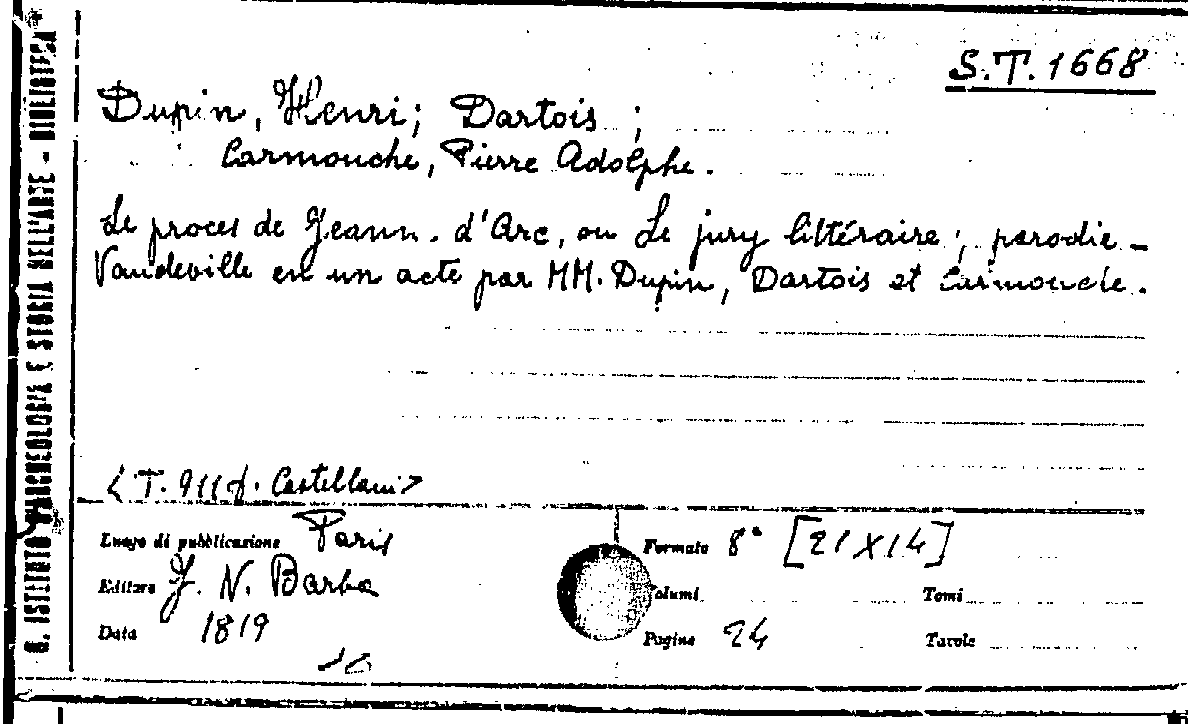 S.T. 1668
Dupin, Henri; Dartois ;
Carmouche, Pierre Adolphe.
Le proces de Jeann. d'Arc, ou Le jury littéraire; parodie-
Vaudeville en un acte par MM. Dupin, Dartois et Carmouche.
<T. 911 f. Castellani>
Luogo di pubblicazione Paris
Editore J. N. Barba
Data 1819
Formato 8° [21X14]
Volumi
Tomi
Pagine 24
Tavole
R. ISTITUTO D'ARCHEOLOGIA E STORIA DELL'ARTE - BIBLIOTECA